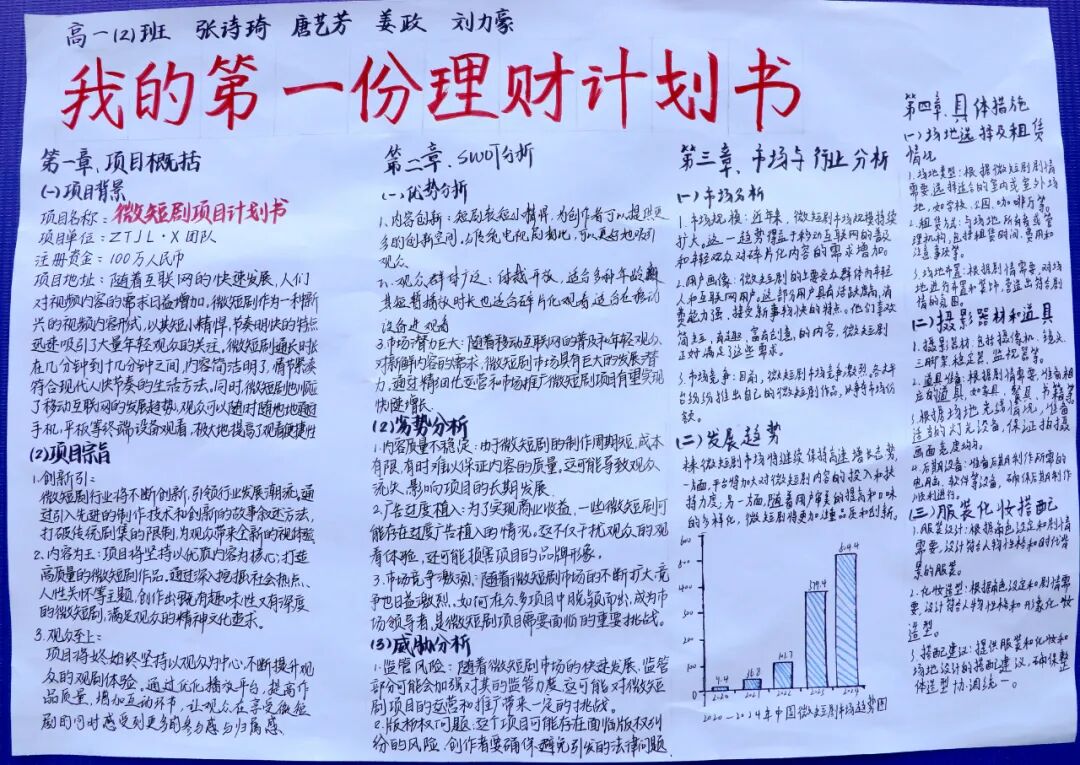 高一(2)班 张诗琦 唐艺芳 姜政 刘力豪
我的第一份理财计划书
第一章、项目概括
(一)项目背景
项目名称：微短剧项目计划书
项目单位：ZTJL·X团队
注册资金：100万人民币
项目地址：随着互联网的快速发展，人们
对视频内容的需求日益增加，微短剧作为一种新
兴的视频内容形式，以其短小精悍，节奏明快的特点
迅速吸引了大量年轻观众的关注。微短剧通长时长
在几分钟到十几分钟之间，内容简洁明了，情节紧凑
符合现代人快节奏的生活方法，同时，微短剧也顺应
了移动互联网的发展趋势，观众可以随时随地通过
手机，平板等终端设备观看，极大地提高了观看便捷性
(2)项目宗旨
1.创新引：
微短剧行业将不断创新，引领行业发展潮流，通
过引入先进的制作技术和创新的故事叙述方法，
打破传统剧集的限制，为观众带来全新的视听体验
2.内容为王：项目将坚持以优质内容为核心；打造
高质量的微短剧作品，通过深入挖掘社会热点、
人性关怀等主题，创作出既有趣味性又有深度
的微短剧，满足观众的精神文化要求。
3.观众至上：
项目将终始终坚持以观众为中心，不断提升观
众的观剧体验。通过优化播放平台，提高作
品质量，增加互动环节，让观众在享受微短
剧的同时感受到更多的参与感与归属感。
第二章、SWOT分析
(一)优势分析
1、内容创新：短剧表短小精悍，为创作者可以提供更
多的创新空间，与传统电视剧相比，可以更好地吸引
观众
2、观众群体广泛：体越开放，适合多种年龄
其短暂播放时长也适合碎片化观看适合在移动
设备进观看
3.市场潜力巨大：随着移动互联网的普及和年轻观众
对新鲜内容的需求，微短剧市场具有巨大的发展潜
力，通过精细化运营和市场推广微短剧项目有望实现
快速增长
(2)劣势分析
1.内容质量不稳定：由于微短剧的制作周期短，成本
有限，有时难以保证内容的质量，这可能导致观众
流失，影响项目的长期发展
2.广告过度植入：为了实现商业收益，一些微短剧可
能存在过度广告植入的情况，这不仅干扰观众的观
看体验，还可能损害项目的品牌形象。
3.市场竞争激烈：随着微短剧市场的不断扩大，竞
争也日益激烈。如何在众多项目中脱颖而出，成为市
场领导者，是微短剧项目需要面临的重要挑战。
(3)威胁分析
1.监管风险：随着微短剧市场的快速发展，监管
部分可能会加强对其的监管力度，这可能对微短剧
项目的运营和推广带来一定的挑战。
2.版权问题：这个项目可能存在面临版权纠
纷的风险，创作者要确保避免引发的法律问题
第三章、市场与行业分析
(一)市场分析
1.市场规模：近年来，微短剧市场规模持续
扩大，这一趋势得益于移动互联网的普及
和年轻观众对碎片化内容的需求增加。
2.用户画像：微短剧的主要受众群体为年轻
人和互联网用户，这部分用户具有活跃度高，消
费能力强，接受新事物快的特点。他们喜欢
简短，有趣，富有创意，的内容，微短剧
正好满足了这些需求。
3.市场竞争：目前，微短剧市场竞争激烈。各大平
台纷纷推出自己的微短剧作品，以争夺市场份
额。
(二)发展趋势
未来微短剧市场将继续保持高速增长态势，
一方面，平台将加大对微短剧内容的投入和扶
持力度；另一方面，随着用户审美的提高和口味
的多样化，微短剧将更加注重品质和创新。
600
500
400
300
200
100
0
9.4
36.8
101.7
373.9
504.4
2020
2021
2022
2023
2024
2020-2024年中国微短剧市场趋势图
第四章.具体措施
(一)场地选择及租赁
情况
1.场地类型：根据微短剧剧情
需要，选择适合的室内或室外场
地，如学校、公园、咖啡厅等。
2.租赁方式：与场地所有者或管
理机构，包括租赁时间、费用和
注意事项等。
3.场地布置：根据剧情需要，对场
地进行布置和装饰，营造出符合剧
情的氛围。
(二)摄影器材和道具
1.摄影器材：包括摄像机、镜头
三脚架、稳定器、监视器等。
2.道具准备：根据剧情需要，准备相
应的道具，如家具，餐具，书籍等
3.根据场地光端情况，准备
适当的灯光设备，保证拍摄
画面亮度均匀。
4.后期设备：准备后期制作所需的
电脑、软件等设备，确保后期制作
顺利进行。
(三)服装化妆搭配
1.服装设计：根据角色设定和剧情
需要，设计符合人物性格和时代背
景的服装。
2.化妆造型：根据角色设定和剧情需
要，设计符合人物性格和形象化妆
造型。
3.搭配建议：提供服装和化妆和
场地设计的搭配建议，确保整
体造型协调统一。